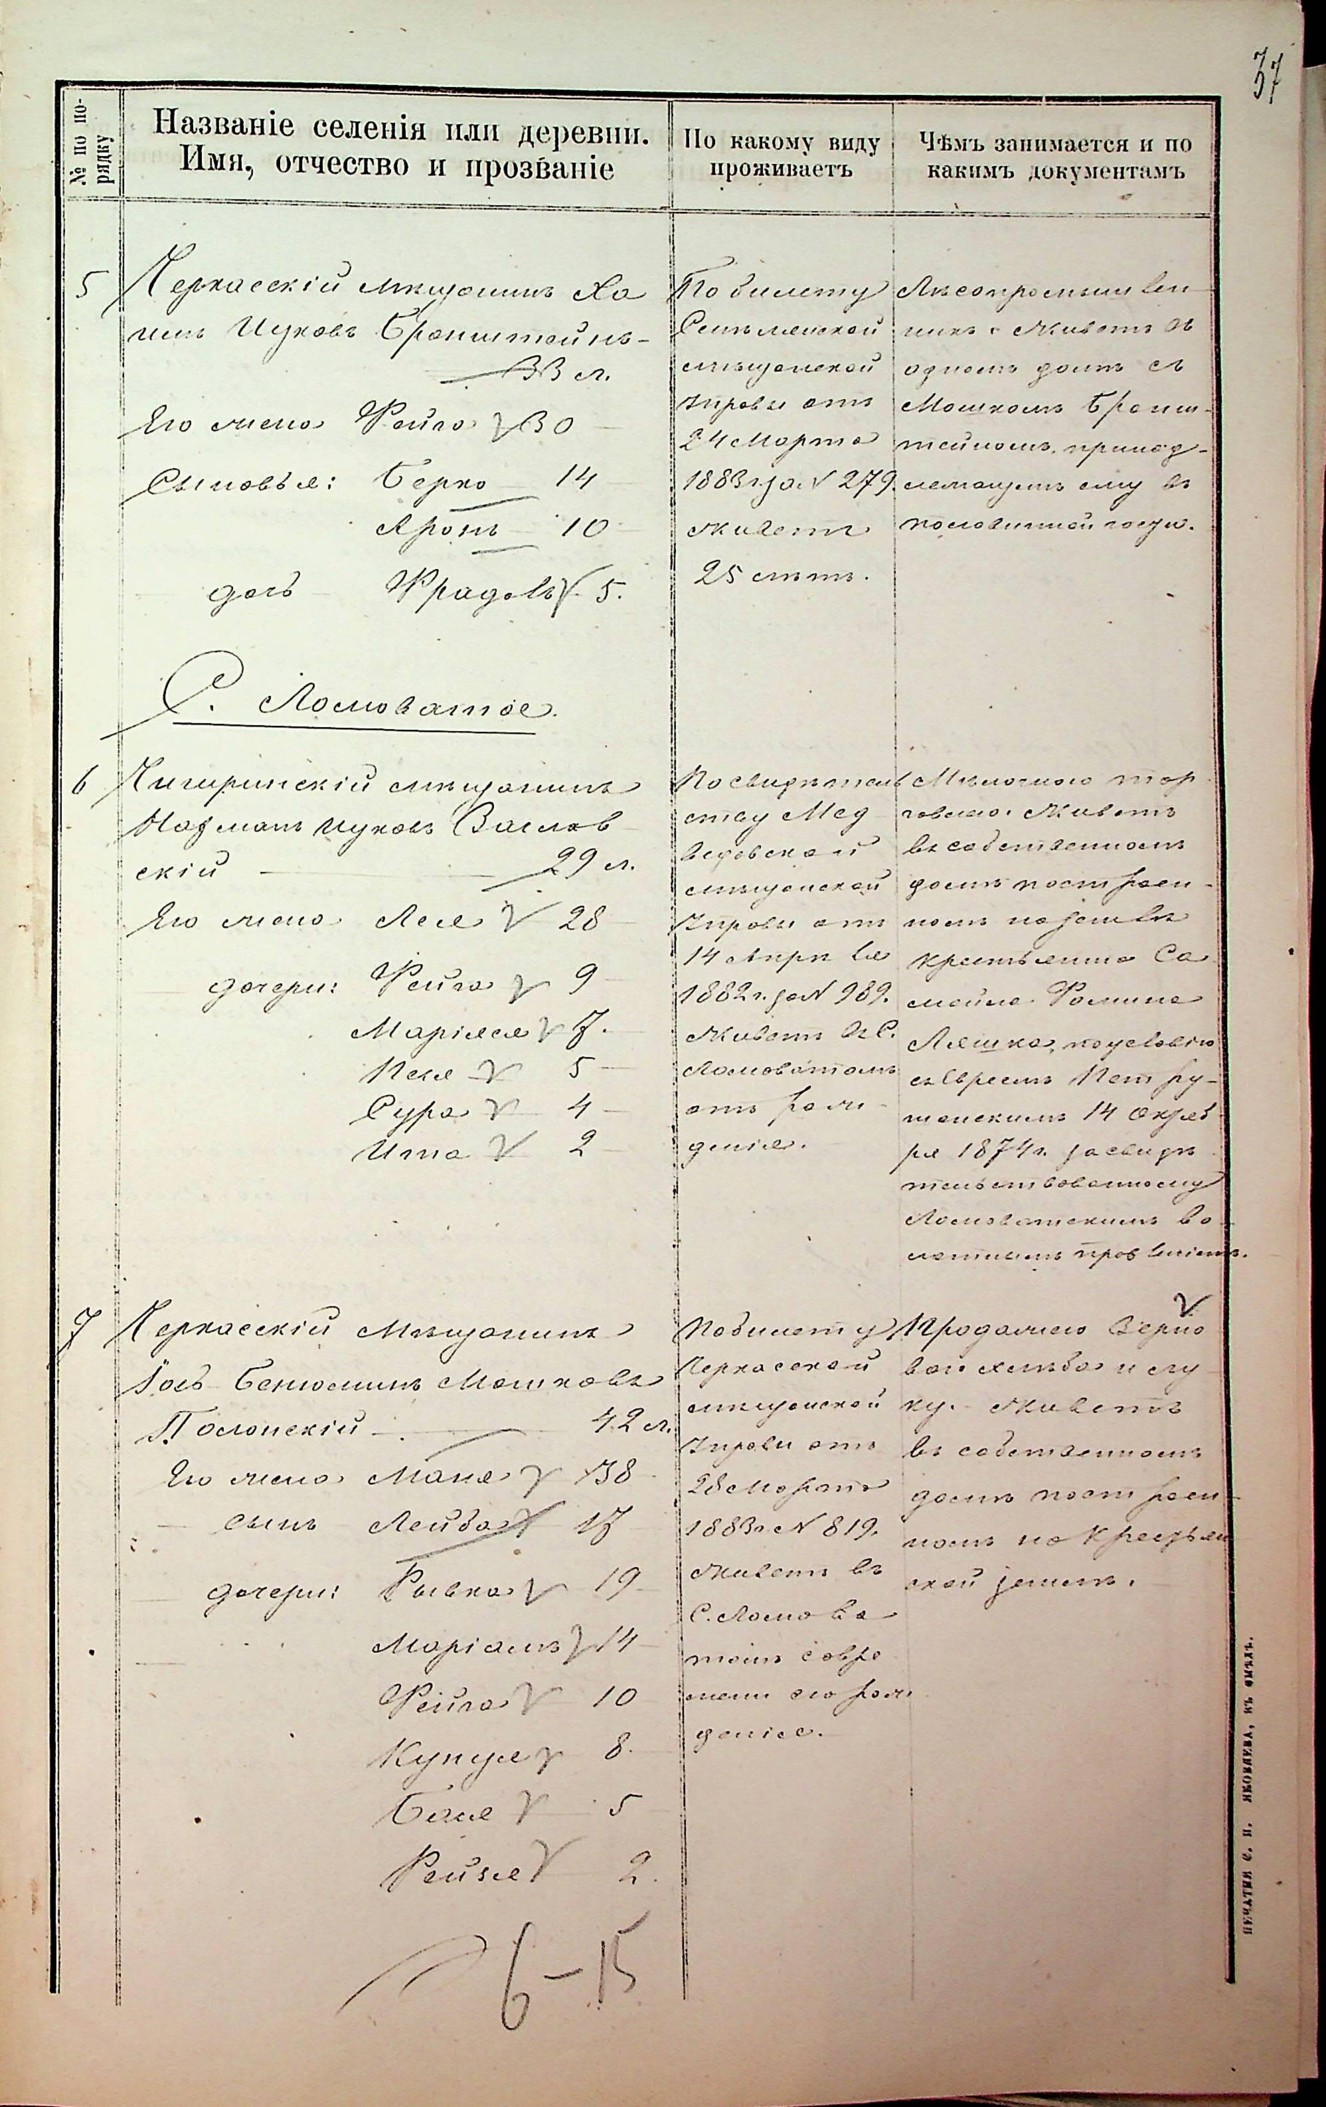 37
№ по по-
рядку
Названіе селенія или деревни.
Имя, отчество и прозваніе
По какому виду
проживаетъ
Чѣмъ занимается и по
какимъ документамъ
5
Черкасскій мѣщанинъ Ха
имъ Ицковъ Бронштейнъ-
33 л.
Его жена Фейга 30
Сыновья: Берко 14
Аронъ 10
дочь 5.
По билету
мѣщанской
Управы отъ
24 Марта
1883 г. за N 279.
живетъ
25 лѣтъ.
Лѣсопромышлен
никъ. Живетъ въ
одномъ домѣ съ
Мошкомъ Бронш-
тейномъ, принад-
лежащемъ ему въ
половинной части.
С. Ломоватое.
6
Чигиринскій мѣщанинъ
Нахманъ Ицковъ Вагнов
скій 29 л.
Его жена Лея 28
дочери: Фейга 9
Маріяся 7.
Песя 5
Сура 4
Ита 2
По свидѣтель
ству Мед
ведовской
мѣщанской
Управы отъ
14 Апрѣля
1882 г. за N 989.
Живетъ въ С.
Ломоватомъ
отъ рож
денія.
Мѣлочною тор
говлею. Живетъ
въ собственномъ
домѣ построен-
номъ на землѣ
крестьянина Са
мойла Фомина
Ляшка, по условію
съ Евреемъ
14 Октяб
ря 1874 г. засвидѣ
тельствованному
Ломоватскимъ во
лостнымъ правленіемъ.
7
Черкасскій Мѣщанинъ
Іось Бенюминъ Мошковъ
Полонскій 42 л.
Его жена Маня 38
сынъ Лейба 17
дочери: Рывка 19
Маріамъ 14
Фейга 10
8.
Бася 5
Рейзя 2.
По билету
Черкасской
мѣщанской
Управы отъ
28 Марта
1883 г. N 819.
Живетъ въ
С. Ломова
томъ со вре
мени его рож
денія.
Продажею Зерно
ваго хлѣба и му
ки. Живетъ
въ собственномъ
домѣ построен-
номъ на Крестьян
ской землѣ.
6-15
ПЕЧАТНЯ С. П. ЯКОВЛЕВА, ВЪ СМѢЛѢ.